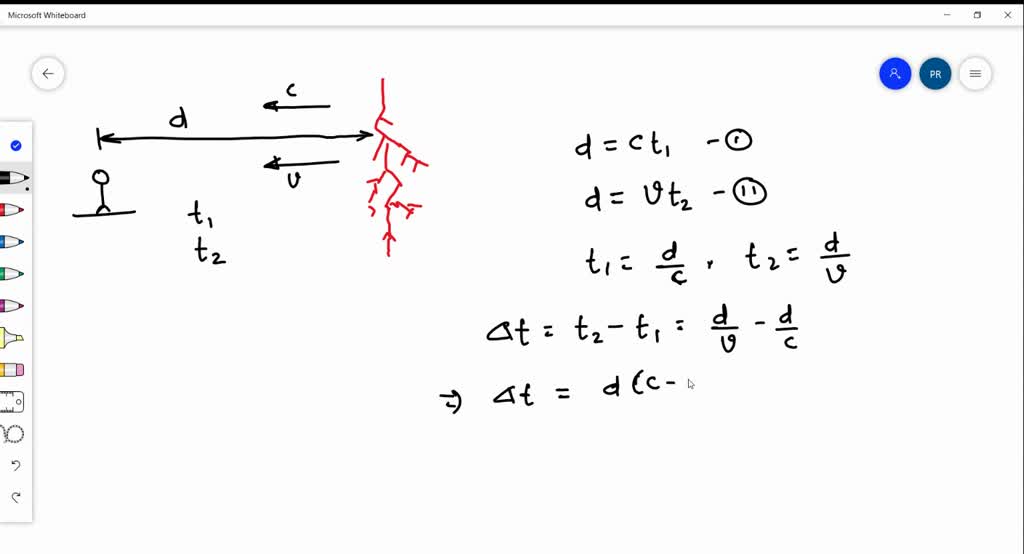 Microsoft Whiteboard
PR
c
d
v
t₁
t₂
d = ct₁ - Ⓘ
d = vt₂ - ⒾⒾ
t₁ = d/c , t₂ = d/v
Δt = t₂ - t₁ = d/v - d/c
⇒ Δt = d(c -